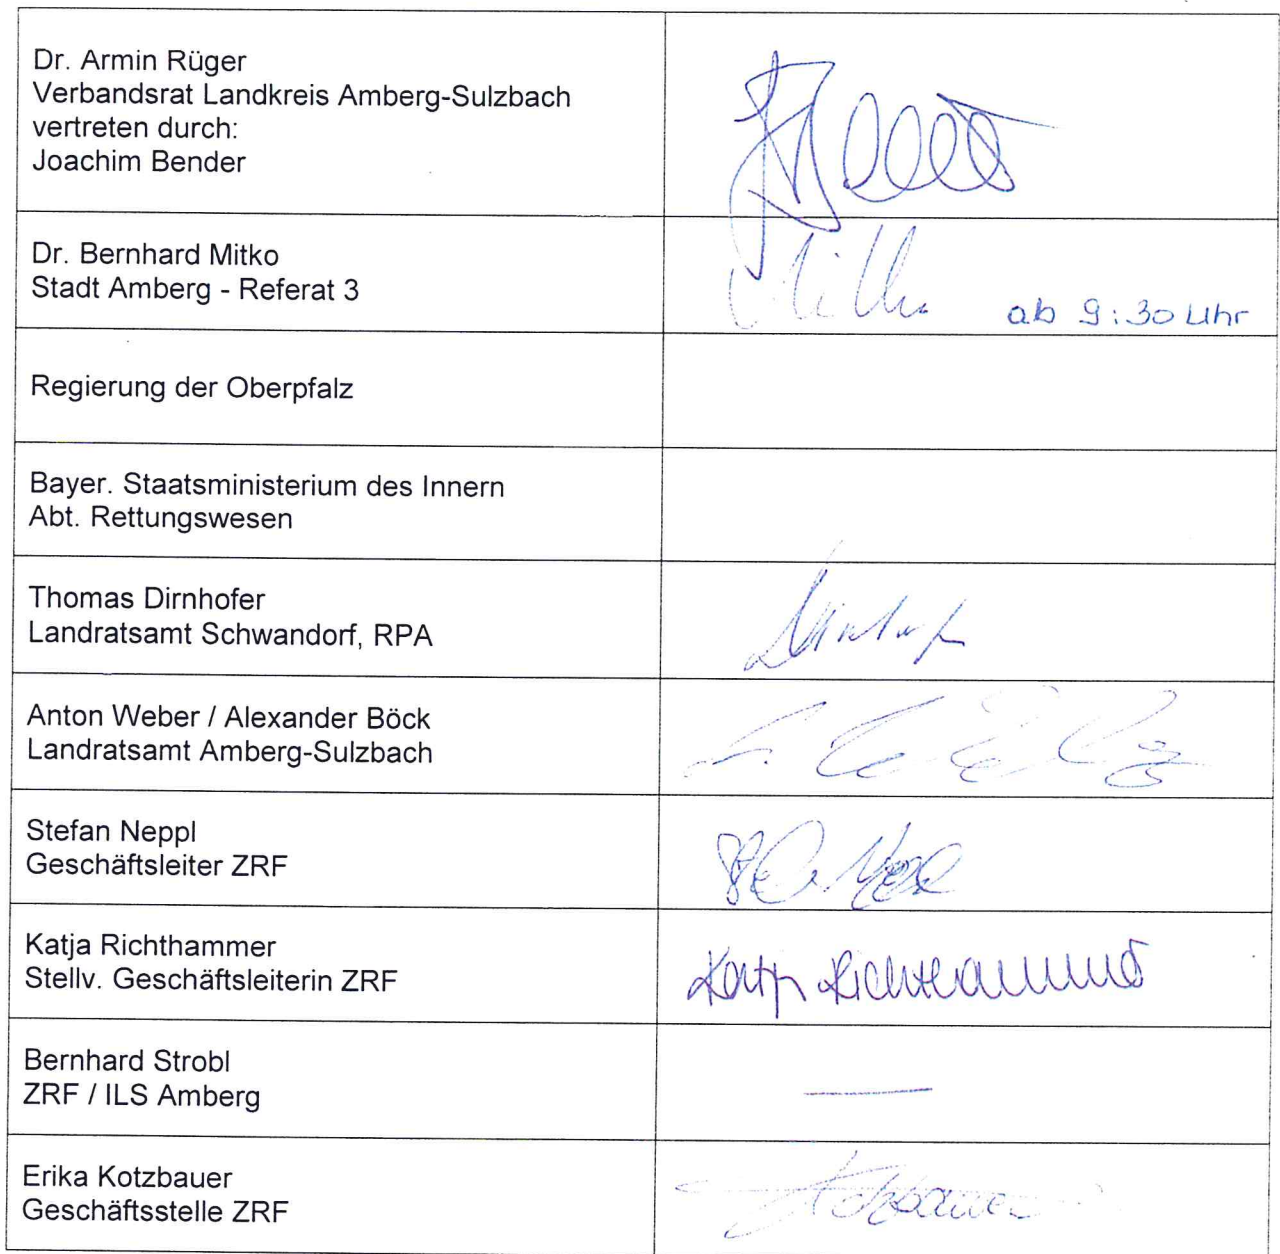 Dr. Armin Rüger
Verbandsrat Landkreis Amberg-Sulzbach
vertreten durch:
Joachim Bender
Dr. Bernhard Mitko
Stadt Amberg - Referat 3
ab 9:30 Uhr
Regierung der Oberpfalz
Bayer. Staatsministerium des Innern
Abt. Rettungswesen
Thomas Dirnhofer
Landratsamt Schwandorf, RPA
Anton Weber / Alexander Böck
Landratsamt Amberg-Sulzbach
Stefan Neppl
Geschäftsleiter ZRF
Katja Richthammer
Stellv. Geschäftsleiterin ZRF
Katja Richthammer
Bernhard Strobl
ZRF / ILS Amberg
Erika Kotzbauer
Geschäftsstelle ZRF
Kotzbauer